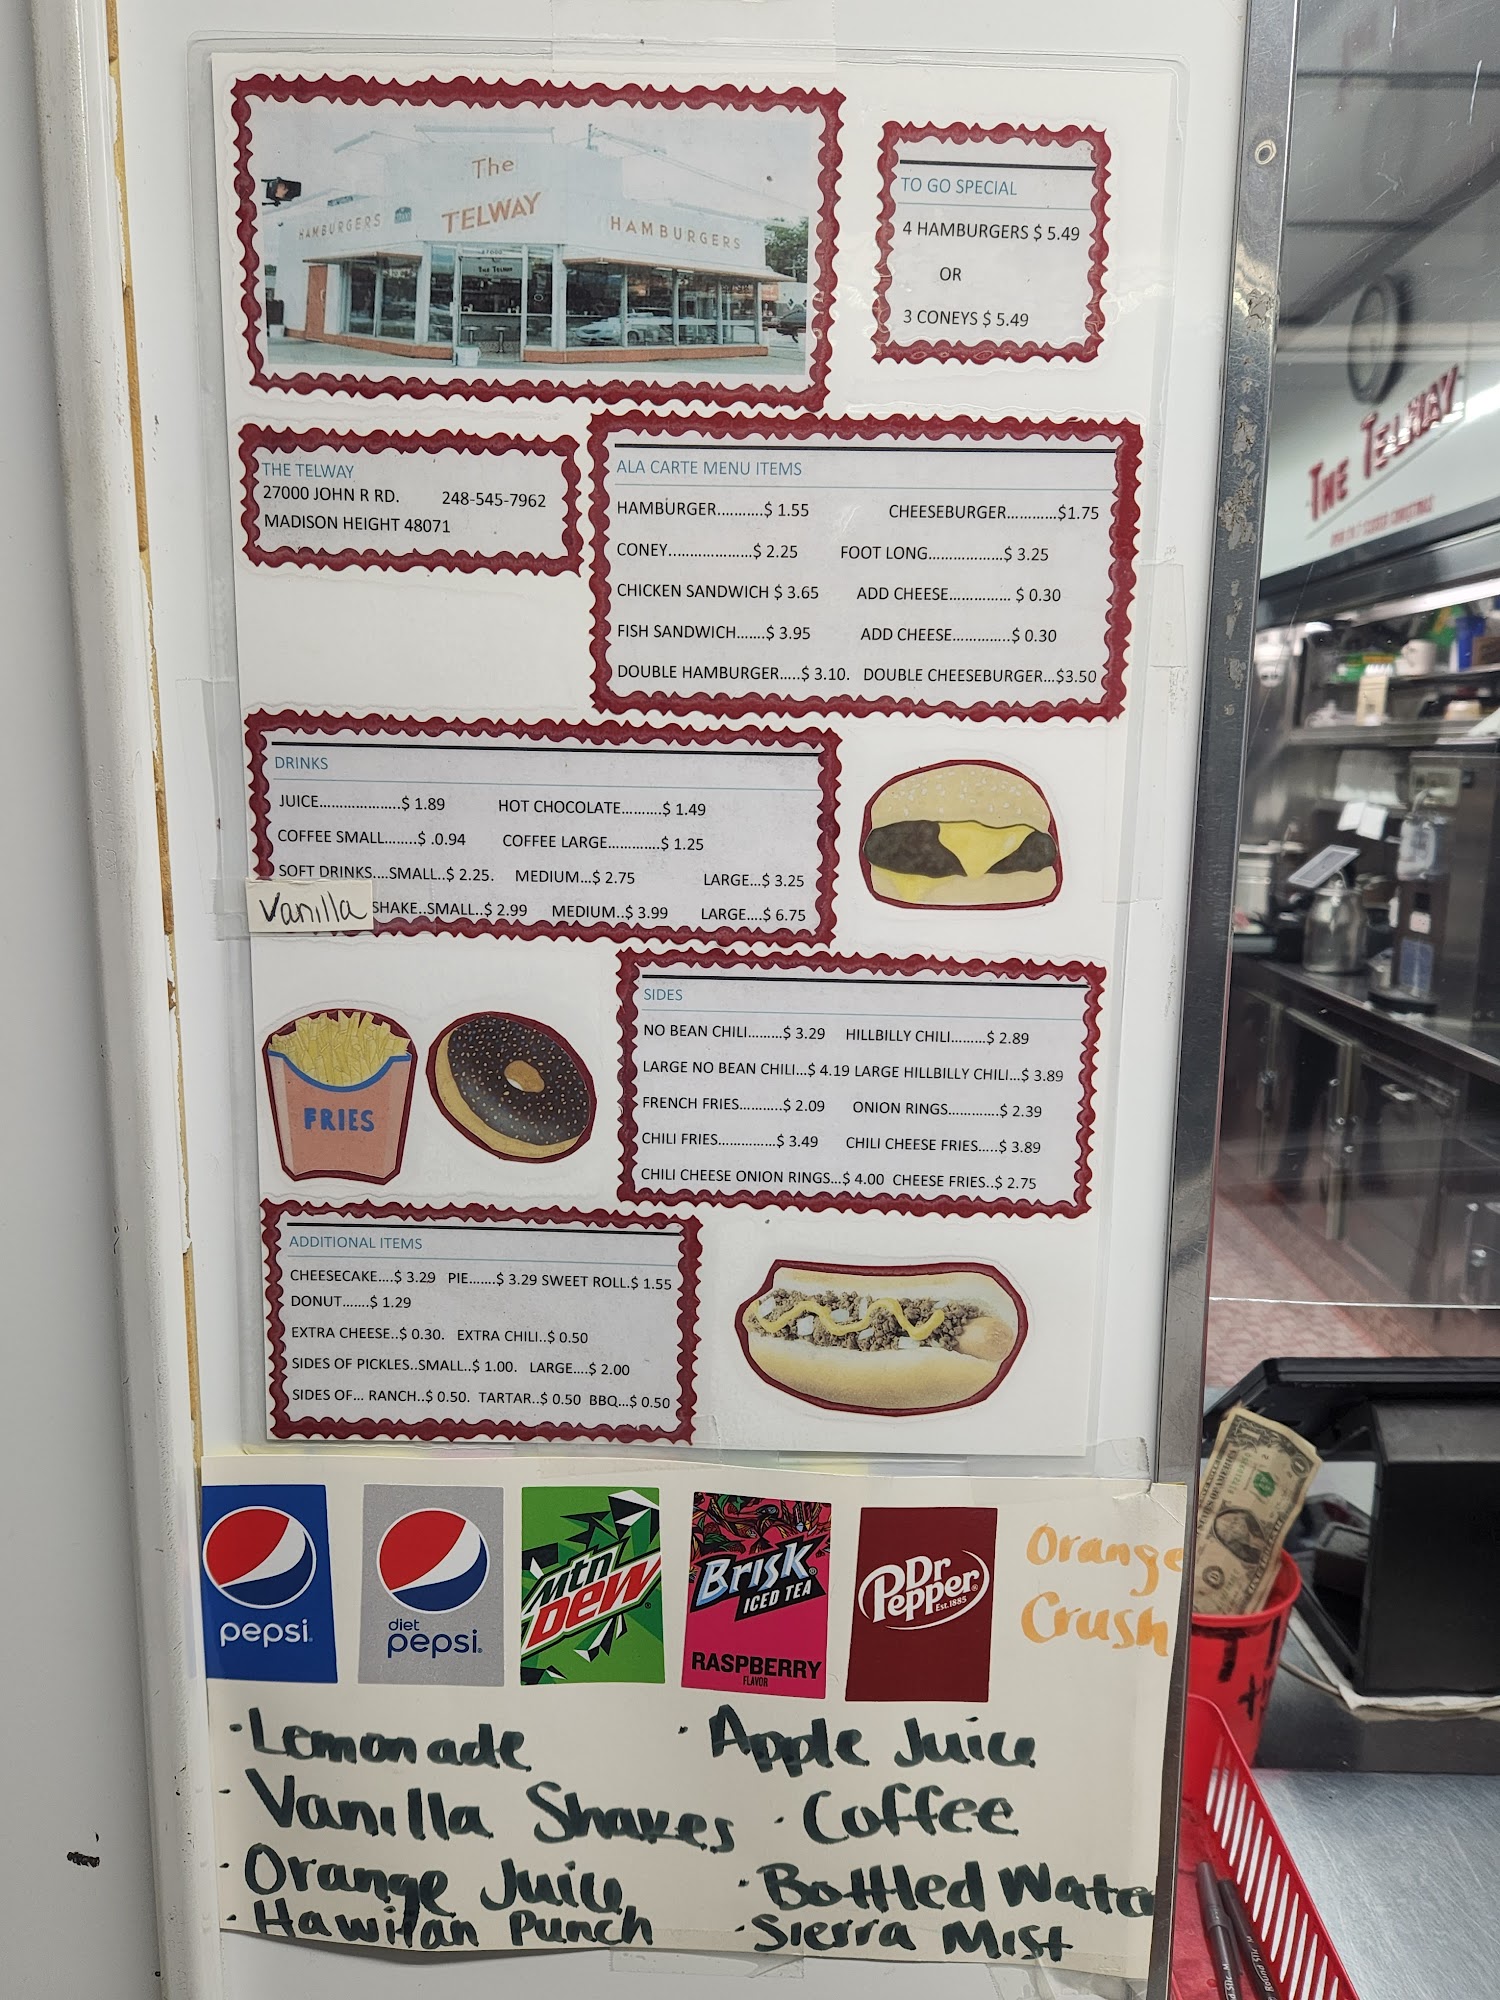 The
TELWAY
HAMBURGERS
HAMBURGERS
27000
THE TELWAY
TO GO SPECIAL
4 HAMBURGERS $ 5.49
OR
3 CONEYS $ 5.49
THE TELWAY
27000 JOHN R RD. 248-545-7962
MADISON HEIGHT 48071
ALA CARTE MENU ITEMS
HAMBURGER..........$ 1.55 CHEESEBURGER...........$1.75
CONEY...................$ 2.25 FOOT LONG.................$ 3.25
CHICKEN SANDWICH $ 3.65 ADD CHEESE.............. $ 0.30
FISH SANDWICH.......$ 3.95 ADD CHEESE.............$ 0.30
DOUBLE HAMBURGER.....$ 3.10. DOUBLE CHEESEBURGER...$3.50
DRINKS
JUICE....................$ 1.89 HOT CHOCOLATE.........$ 1.49
COFFEE SMALL........$ .0.94 COFFEE LARGE............$ 1.25
SOFT DRINKS....SMALL..$ 2.25. MEDIUM...$ 2.75 LARGE....$ 3.25
Vanilla SHAKE..SMALL..$ 2.99 MEDIUM..$ 3.99 LARGE....$ 6.75
SIDES
NO BEAN CHILI.........$ 3.29 HILLBILLY CHILI.........$ 2.89
LARGE NO BEAN CHILI...$ 4.19 LARGE HILLBILLY CHILI...$ 3.89
FRENCH FRIES...........$ 2.09 ONION RINGS.............$ 2.39
CHILI FRIES...............$ 3.49 CHILI CHEESE FRIES.....$ 3.89
CHILI CHEESE ONION RINGS...$ 4.00 CHEESE FRIES..$ 2.75
FRIES
ADDITIONAL ITEMS
CHEESECAKE....$ 3.29 PIE.......$ 3.29 SWEET ROLL.$ 1.55
DONUT.......$ 1.29
EXTRA CHEESE..$ 0.30. EXTRA CHILI..$ 0.50
SIDES OF PICKLES..SMALL..$ 1.00. LARGE....$ 2.00
SIDES OF... RANCH..$ 0.50. TARTAR..$ 0.50 BBQ...$ 0.50
pepsi
diet pepsi
Mtn Dew
Brisk ICED TEA
RASPBERRY
FLAVOR
Dr Pepper
Est. 1885
Orange
Crush
· Lemonade · Apple Juice
· Vanilla Shakes · Coffee
· Orange Juice · Bottled Water
· Hawiian Punch · Sierra Mist
THE TELWAY